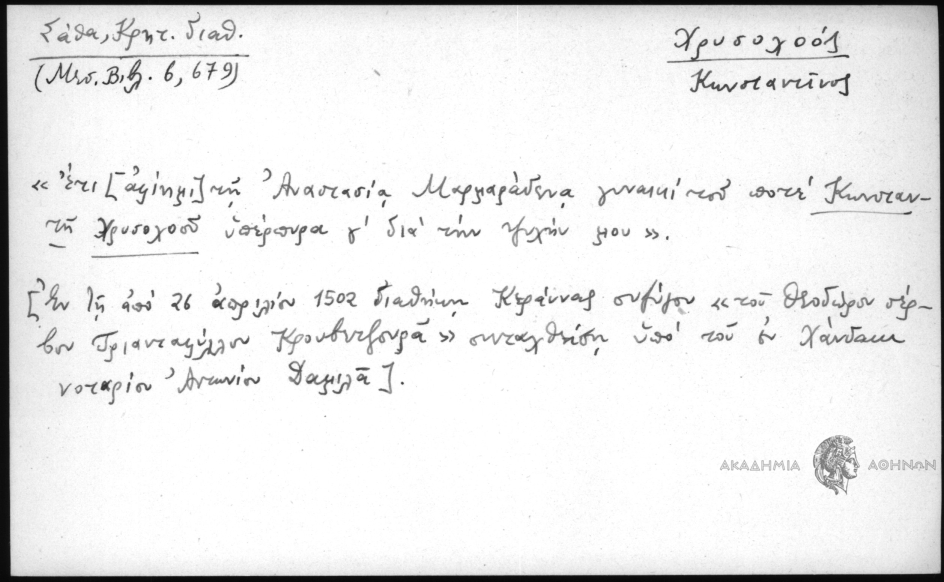 Σάθα, Κρητ. διαθ.
(Μεσ. Βιβλ. 6, 679)
Χρυσοχοός
Κωνσταντῖνος
« Ἔτι [ἀφίημι] τῇ Ἀναστασίᾳ Μαρμαράδενᾳ γυναικί τοῦ ποτέ Κωνσταν-
τῆ Χρυσοχοοῦ ὑπέρπυρα γ' διά τήν ψυχήν μου ».
[Ἐν τῇ ἀπό 26 ἀπριλίου 1502 διαθήκῃ Κεράννας συζύγου « τοῦ Θεοδώρου σέρ-
βου Τριανταφύλλου Κρουβντζουρᾶ » συνταχθείσῃ ὑπό τοῦ ἐν Χάνδακι
νοταρίου Ἀντωνίου Δαμιλᾶ ].
ΑΚΑΔΗΜΙΑ ΑΘΗΝΩΝ